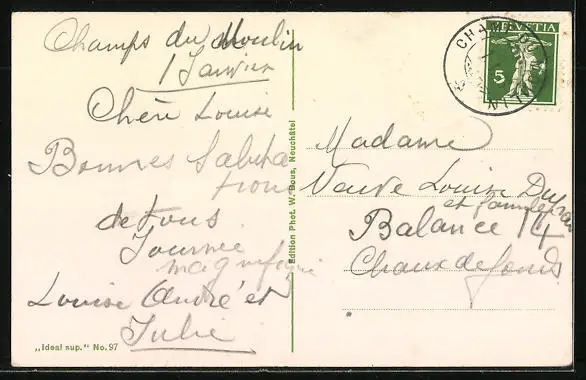 Champs du Moulin
1 Janvier
Chère Louise
Bonnes Saluta
tions
de tous
Journée
magnifique
Louise André et
Julie
„Ideal sup." No. 97
Edition Phot. W. Bous, Neuchâtel
HELVETIA
5
CHAMP DU
Madame
Veuve Louise
et famille
Balance 14
Chaux de fonds